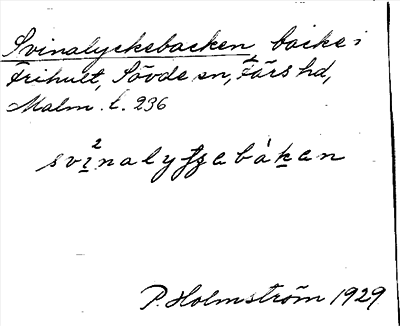 Svinalyckebacken, backe i
Frihult, Sövde sn, Färs hd,
Malm. l. 236
svi²nalyʃʃebàkan
P. Holmström 1929